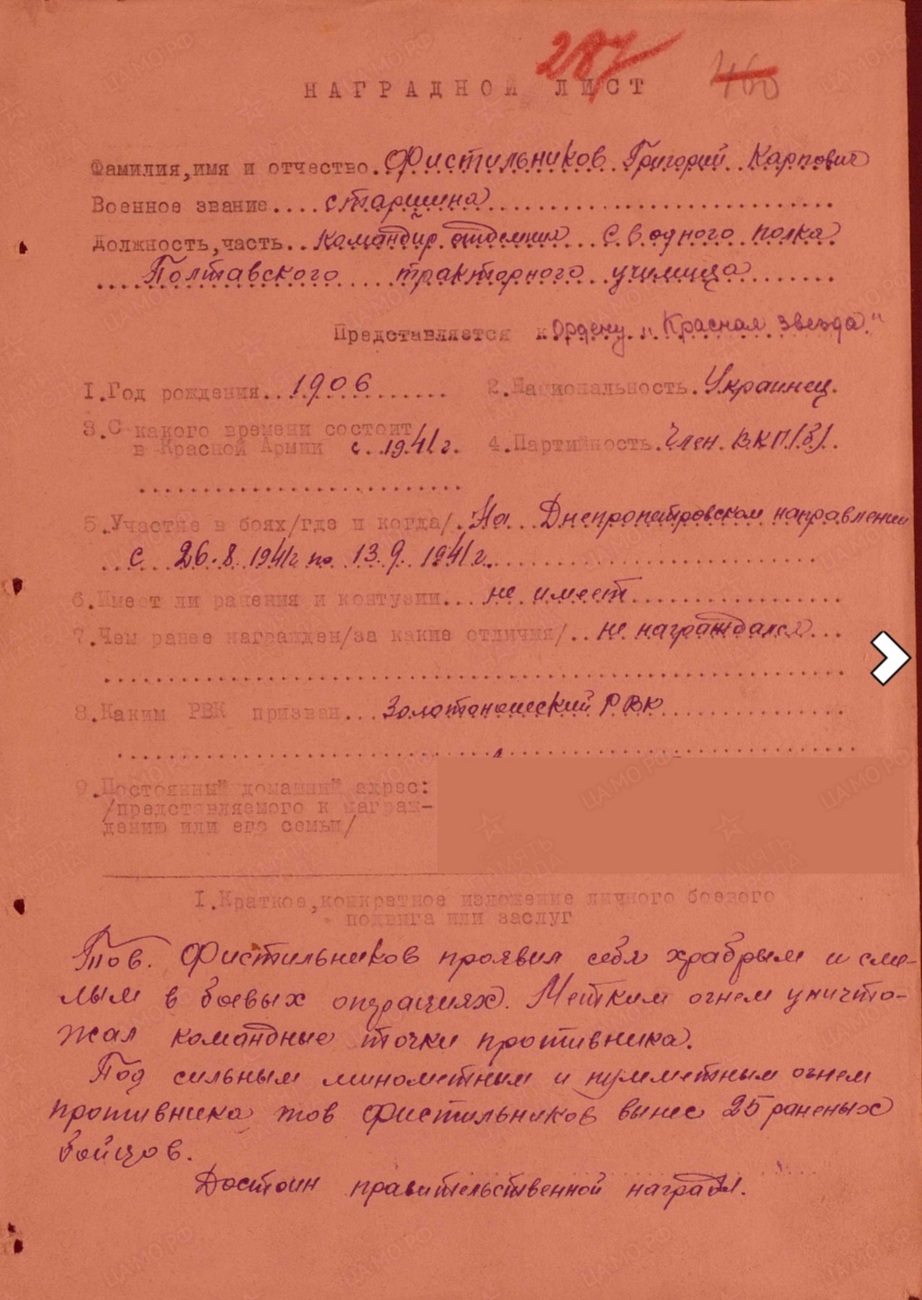 287 460
НАГРАДНОЙ ЛИСТ
Фамилия,имя и отчество. Фистильников Григорий Карпович
Военное звание.... старшина
Должность,часть.. командир отделения сводного полка
Полтавского тракторного училища
Представляется к Ордену „Красная звезда."
1.Год рождения... 1906
2.Национальность. Украинец.
3.С какого времени состоит
в Красной Армии с 1941 г.
4.Партийность. Член ВКП/б/.
5.Участие в боях/где и когда/. На Днепропетровском направлении
с 26.8 1941г по 13.9. 1941 г.
6.Имеет ли ранения и контузии... не имеет
7.Чем ранее награжден/за какие отличия/.. не награждался...
8.Каким РВК призван... Золотоношский РВК
9.Постоянный домашний адрес:
/представляемого к награж-
дению или его семьи/
I.Краткое,конкретное изложение личного боевого
подвига или заслуг
Тов. Фистильников проявил себя храбрым и сме-
лым в боевых операциях. Метким огнем уничто-
жал командные точки противника.
Под сильным минометным и пулеметным огнем
противника тов Фистильников вынес 25 раненых
бойцов.
Достоин правительственной награды.